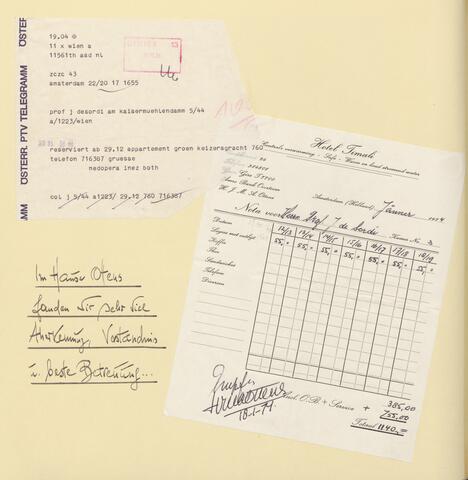 ÖSTERR. PTV TELEGRAMM
19.04
11 x wien a
11561th asd nl
zczc 43
amsterdam 22/20 17 1655
prof j desordi am kaisermuehlendamm 5/44
a/1223/wien
reserviert ab 29.12 appartement groen keizersgracht 760
telefon 716387 gruesse
nedopera inez both
col j 5/44 a1223/ 29.12 760 716387
Hotel Timali
Centrale verwarming - Lift - Warm en koud stromend water
Amsterdam (Holland), Jänner 1974
Nota voor Herr Prof. J de Sordi Kamer No. 3
Datum 12/13 13/14 14/15 15/16 16/17 17/18 18/19
Logies met ontbijt 55,= 55,= 55,= 55,= 55,= 55,= 55,=
Koffie
Thee
Sandwiches
Telefoon
Diversen
385,00
Incl. O.B. + Service + 755,00
Totaal 1140,=
18-1-74
Im Hause Otens
fanden wir sehr viel
Anerkennung, Verständnis
u. beste Betreuung...